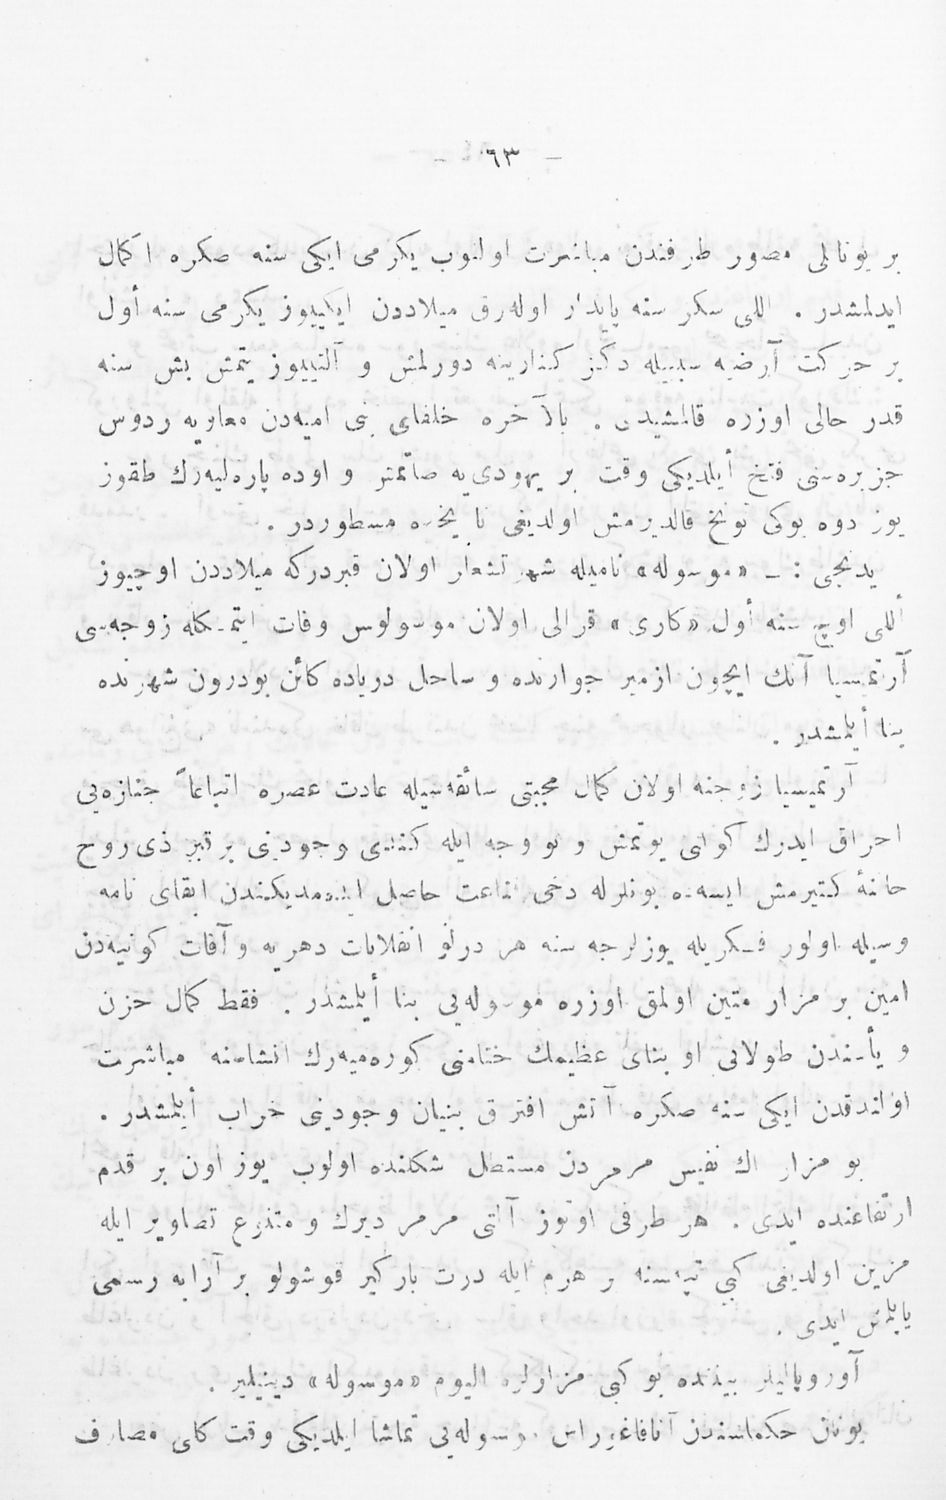 — ٦٣ —
بر یونانلی مصور طرفندن مباشرت اولنوب یکرمی ایکی سنه صکره اکمال
ایدلمشدر . اللی سکز سنه پایدار اوله‌رق میلاددن ایکییوز یکرمی سنه أول
بر حرکت آرضیه سببیله دکز کنارینه دورلمش و آلتییوز یتمش بش سنه
قدر حالی اوزره قالمشیدی . بالآخره خلفای بنی امیه‌دن معاویه ردوس
جزیره‌سنی فتح أیلدیکی وقت بر یهودی‌یه صاتمش و اوده پاره‌لیه‌رك طقوز
یوز دوه یوکی تونج قالدیرمش اولدیغی تاریخده مسطوردر .
یدنجی : — «موسوله» نامیله شهرتشعار اولان قبردرکه میلاددن اوچیوز
أللی اوچ سنه أول «کاری» قرالی اولان موسولوس وفات ایتمکله زوجه‌سی
آرتمیسیا آنك ایچون ازمیر جوارنده و ساحل دریاده کائن بودرون شهرنده
بنا أیلمشدر .
آرتمیسیا زوجنه اولان کمال محبتی سائقه‌سیله عادت عصره اتباعاً جنازه‌یی
احراق ایدرك کولنی یوتمش و بو وجه ایله کندی وجودینی بر قبر ذی روح
حالنهٔ کتیرمش ایسه‌ده بونلرله دخی قناعت حاصل ایده‌مدیکندن ابقای نامه
وسیله اولور فکریله یوزلرجه سنه هر درلو انقلابات دهریه و آفات کونیه‌دن
امین بر مزار متین اولمق اوزره موسوله‌یی بنا أیلمشدر . فقط کمال حزن
و یأسندن طولایی او بنای عظیمك ختامنی کوره‌میه‌رك انشاسنه مباشرت
اولندقدن ایکی سنه صکره آتش افتراق بنیان وجودینی خراب أیلمشدر .
بو مزار اك نفیس مرمردن مستطیل شکلنده اولوب یوز اون بر قدم
ارتفاعنده ایدی . هر طرفی اوتوز آلتی مرمر دیرك و متنوع تصاویر ایله
مزین اولدیغی کبی تپه‌سنه بر هرم ایله درت بارکیر قوشولو بر آرابه رسمی
یاپلمش ایدی .
آوروپالیلر بیننده بو کبی مزارلره الیوم «موسوله» دینیلیر .
یونان حکماسندن آناقاغوراس موسوله‌یی تماشا ایلدیکی وقت کلی مصارف